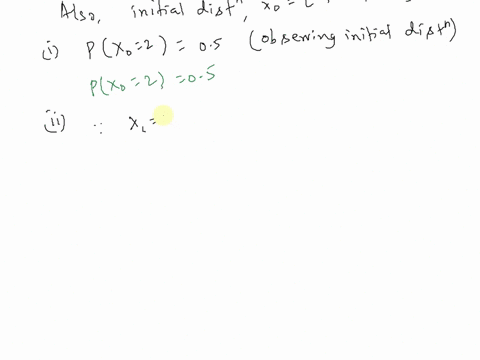 Also, initial distⁿ, x₀ =
(i) P(X₀=2) = 0.5 (observing initial distⁿ)
P(X₀=2) = 0.5
(ii) ∵ X₁ =